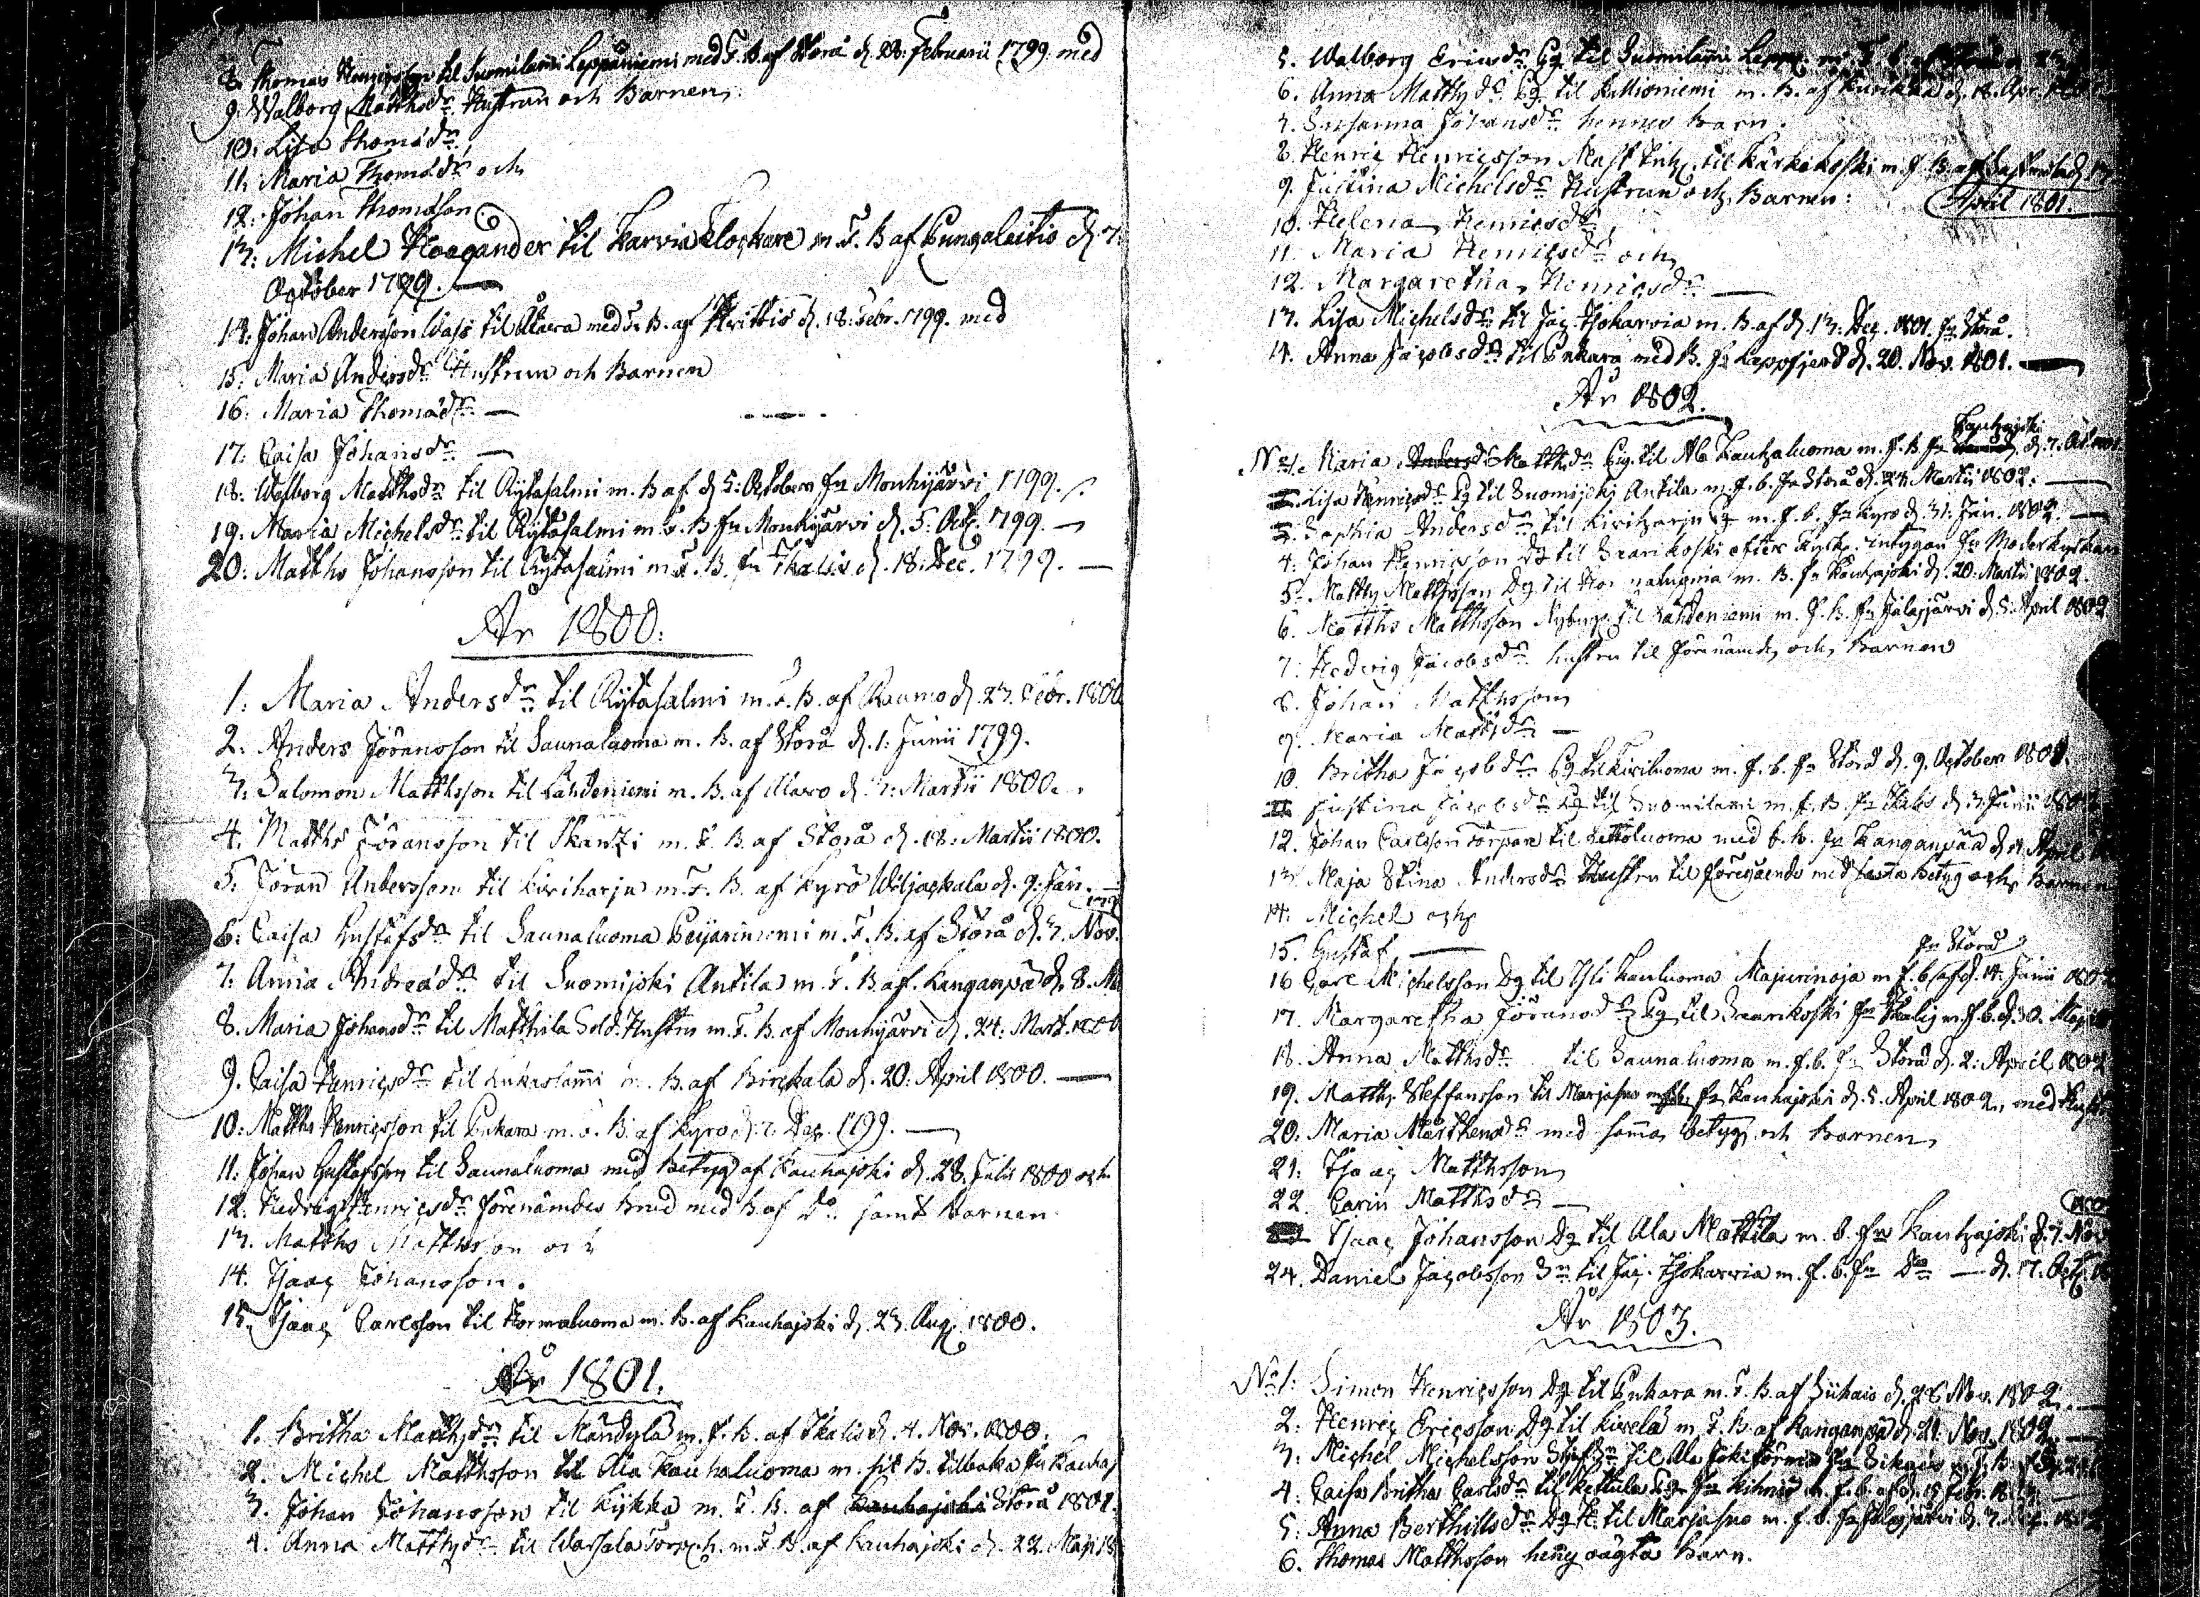 8. Thomas Henricsson til Suomilammi Leppäniemi med F. B. af Storå d. 28. Februarii 1799. med
9. Walborg Matthsdr. Hustrun och Barnen,
10. Lisa Thomædr.
11. Maria Thomædr. och
12. Johan Thomæson
13. Michel Haagander til Karvia Klockare m. F. B af Pungalaitio d. 7.
October 1799.
14. Johan Andersson til Alaera med F. B. af d. 18. Febr. 1799. med
15. Maria Andersdr. Hustrun och Barnen
16. Maria Thomædr. —
17. Caisa Johansdr. —
18. Walborg Matthsdr. til Rytasalmi m. B af d. 5. October fr. Mouhijärvi 1799.
19. Maria Michelsdr. til Rytasalmi m. F. B fr. Mouhijärvi d. 5. Oct. 1799. —
20. Matths Johansson til Rytasalmi m. F. B. fr. Ikalis d. 18. Dec. 1799. —
År 1800.
1. Maria Andersdr. til Rytasalmi m. F. B. af Raumo d. 23. Febr. 1800
2. Anders Jöransson til Saunaluoma m. B. af Storå d. 1. Junii 1799.
3. Salomon Matthsson til Lähdeniemi m. B. af Alavo d. 3. Martii 1800.
4. Matths Jöransson til Skantzi m. F. B. af Storå d. 18. Martii 1800.
5. Jöran Andersson til Kiviharju m. F. B. af Kyrö Wiljackala d. 9. Jan. —
6. Caisa Gustafsdr. til Saunaluoma Peijariniemi m. F. B. af Storå d. 3. Nov.
7. Anna Andreædr. til Suomijoki Antila m. F. B af Kanganpä d. 8.
8. Maria Johansdr. til Matthila Sold. Hustru m. F. B. af Mouhijärvi d. 24. Mart. 1800
9. Caisa Henricsdr. til m. B. af Birckala d. 20. April 1800. —
10. Matths Henricsson til Enkara m. F. B. af Kyro d. 7. Dec. 1799. —
11. Johan Gustafsson til Saunaluoma med Betyg af Kauhajoki d. 28. Julii 1800 och
12. Hedvig Henricsdr. förenämdes Brud med B af Do. samt Barnen
13. Matths Matthsson och
14. Isaac Johansson.
15. Isaac Carlsson til Hormaluoma m. B. af Kauhajoki d. 23. Aug. 1800.
År 1801.
1. Britha Matthsdr. til Mändylä m. F. B. af Ikalis d. 4. Nov. 1800.
2. Michel Matthsson til Ala Kauhaluoma m. sit B. tilbaka fr. Kauhaj
3. Johan Johansson til Kykkä m. F. B. af Kauhajoki Storå 1801.
4. Anna Matthsdr. til Warsala Torp h. m. F. B. af Kauhajoki d. 22. Maji 18
5. Walborg Ericsdr. Pg. til Suomilammi
6. Anna Matthsdr. Pg. til Killioniemi m. B. af Kurikka d. 18. Apr.
7. Susanna Johansdr. hennes barn.
8. Henric Henricsson til Kärkekoski m. F. B. af
9. Justina Michelsdr. Hustrun och Barnen:
April 1801.
10. Helena Henricsdr.
11. Maria Henricsdr. och
12. Margaretha Henricsdr. —
13. Lisa Michelsdr. til Jac. Hjokarvia m. B. af d. 13. Dec. 1801. fr. Storå.
14. Anna Jacobsdr. til Enkara med B. fr. Lappfjerd d. 20. Nov. 1801. —
År 1802.
Kauhajoki
No 1. Maria Andersdr. Matthsdr. Pig. til Ala Kauhaluoma m. F. B. fr. d. 7.
2. Lisa Henricsdr. Pg. til Suomijoki Antila m. f. b. fr. Storå d. 27. Martii 1802. —
3. Sophia Andersdr. til Kiviharju Pg. m. f. b. fr. Kyro d. 31. Jan. 1802. —
4. Johan Henricsson Dg. til Saarikoski efter intygan fr. Moderkyrkan
5. Matths Matthsson Dg. til m. B. fr. Kauhajoki d. 20. Martii 1802.
6. Matths Matthsson Nybygg. til Lähdeniemi m. F. B. fr. Jalasjärvi d. 5. April 1802
7. Hedvig Jacobsdr. hustru til förenämde, och Barnen
8. Johan Matthsson
9. Maria Matthsdr. —
10. Britha Jacobsdr. Pg. til Kiviluoma m. f. b. fr. Storå d. 9. October 1801.
11. Justina Jacobsdr. Pg. til Suomilammi m. f. B. fr. Ikalis d. 3. Junii 1802
12. Johan Carlsson Torpare til Kettoluoma med f. b. fr. Kanganpää d. April
13. Maja Stina Andersdr. Hustru til föregående med samma betyg och Barnen
14. Michel och
15. Gustaf —
fr. Storå
16. Carl Michelsson Dg. til Yli Kauluoma Majurinoja m. f. b. af d. 14. Junii 1802
17. Margaretha Jöransdr. Pg. til Saarikoski fr. Ikalis m. f. b. d. 30. Maji
18. Anna Matthsdr. til Saunaluoma m. f. b. fr. Storå d. 2. April 1802
19. Matths Steffansson til Marjasuo m. f. b. fr. Kauhajoki d. 5. April 1802. med Hustr
20. Maria Mårthensdr. med samma betyg, och Barnen,
21. Isaac Matthsson
22. Carin Matthsdr. —
Isaac Johansson Dg. til Ala Mattila m. b. fr. Kauhajoki d. 7. Nov
24. Daniel Jacobsson Sn. til Jac. Hjokarvia m. f. b. fr. Do — d. 17. Oct.
År 1803.
No 1. Simon Henricsson Dg. til Enkara m. F. B. af Siikais d. 28. Nov. 1802. —
2. Henric Ericsson Dg. til Kivelä m. F. B. af Kanganpä d. 21. Nov. 1802. —
3. Michel Michelsson til Ala
4. Caisa Britha Carlsdr. til Kettula Pg. fr. Kihniö m. f. b. af d. 15 Febr.
5. Anna Berthillsdr. til Marjasuo m. f. b. fr. Jalasjärvi d. 7.
6. Thomas Matthsson hennes oägta barn.